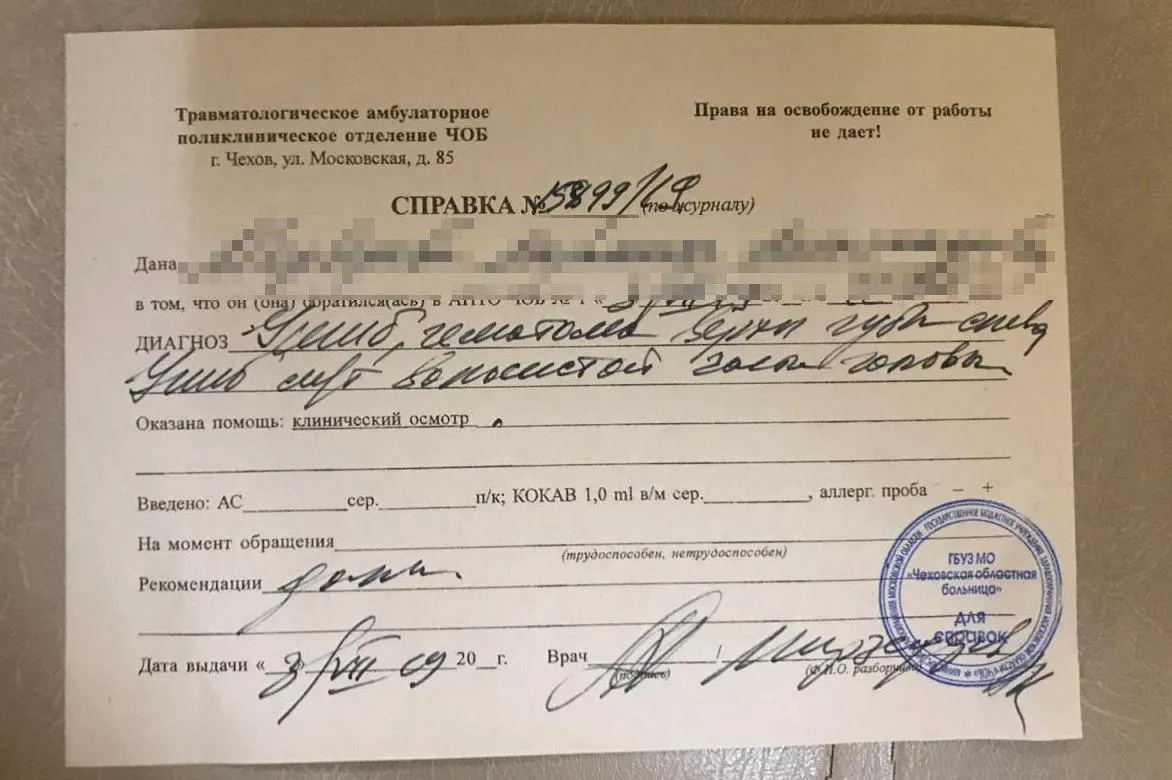 Травматологическое амбулаторное
поликлиническое отделение ЧОБ
г. Чехов, ул. Московская, д. 85
Права на освобождение от работы
не дает!
СПРАВКА № 15899/19 (по журналу)
Дана
в том, что он (она) обратился(ась) в АПТО ЧОБ № 1 «
ДИАГНОЗ Ушиб, гематома верхн губы слева
Ушиб волосистой части головы
Оказана помощь: клинический осмотр
Введено: АС сер. п/к; КОКАВ 1,0 ml в/м сер. , аллерг. проба – +
На момент обращения
(трудоспособен, нетрудоспособен)
Рекомендации даны.
Дата выдачи « 3/VII 19 20 г. Врач /
(подпись) (Ф.И.О. разборчиво)
ГБУЗ МО
"Чеховская областная
больница"
ДЛЯ
СПРАВОК